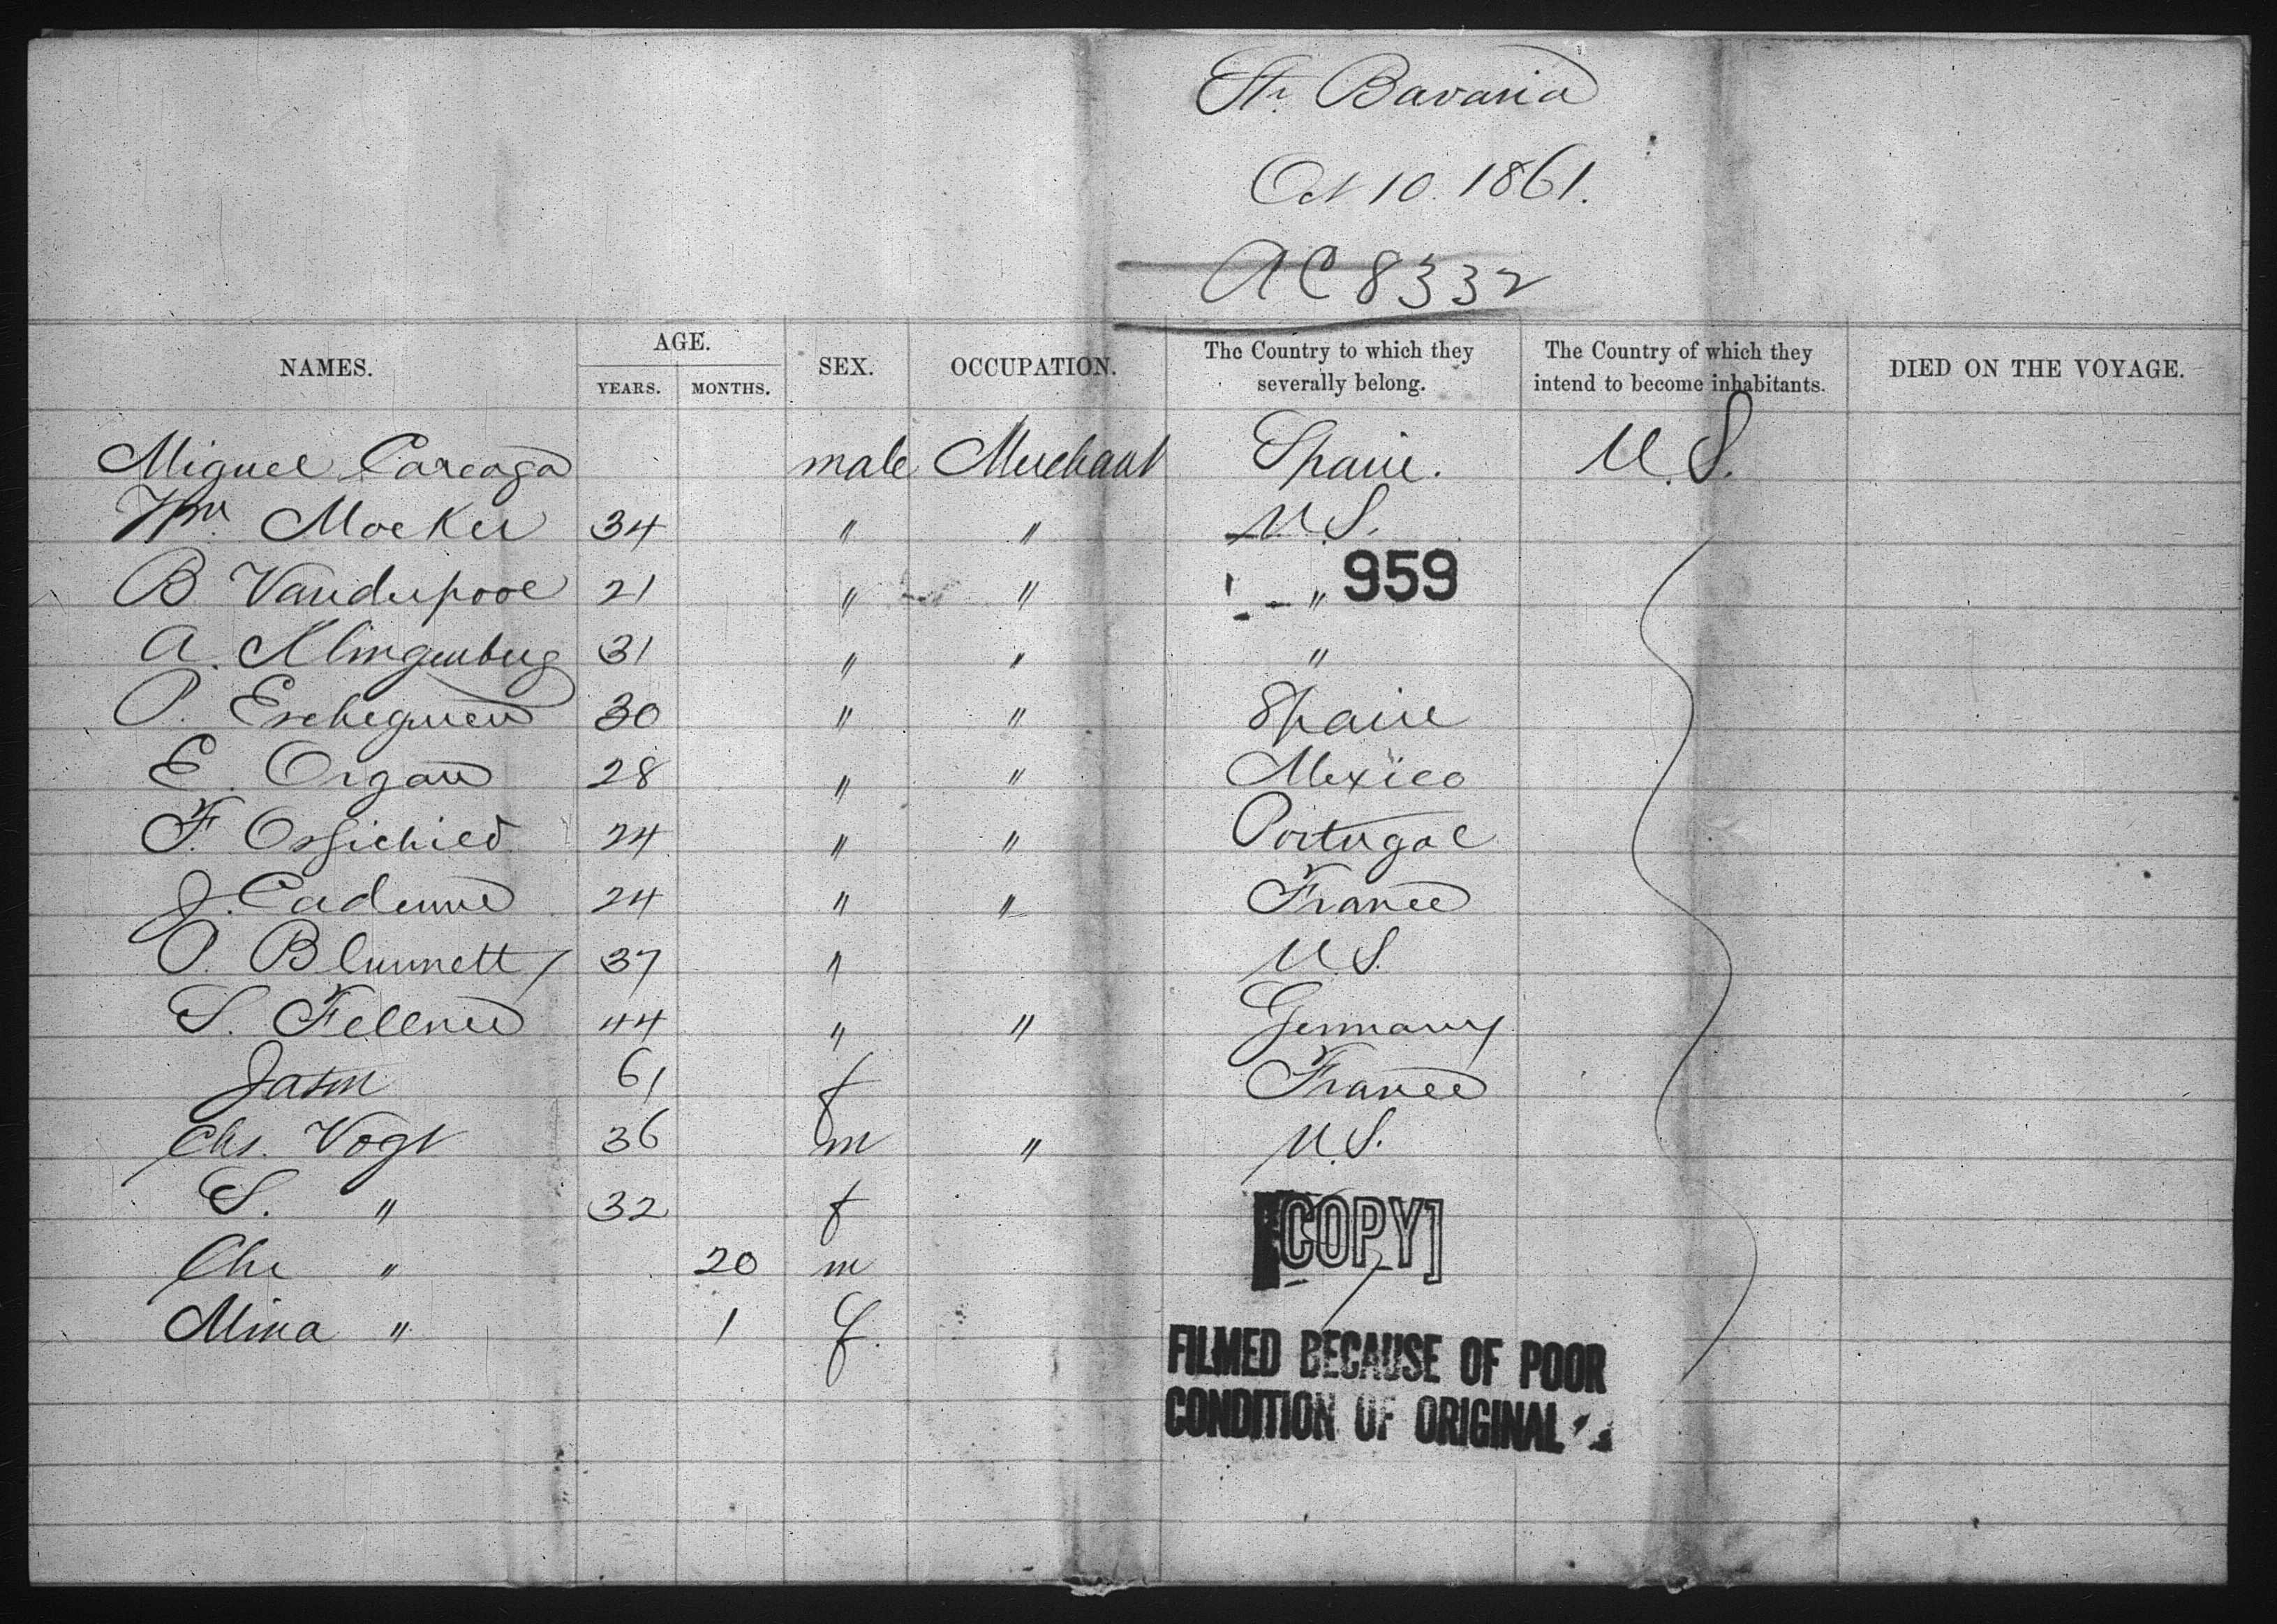 Str. Bavaria
Oct 10. 1861.
AC 8332
NAMES. AGE. YEARS. MONTHS. SEX. OCCUPATION. The Country to which they severally belong. The Country of which they intend to become inhabitants. DIED ON THE VOYAGE.
Miguel Careaga male Merchant Spain. U.S.
Wm. Moeker 34 " " U.S.
959
B Vanderpool 21 " " "
A. Klingenberg 31 " " "
P. 30 " " Spain
E. Organ 28 " " Mexico
F. 24 " " Portugal
J. Cadenne 24 " " France
P. Blumnett 37 " U.S.
S. Fellner 44 " " Germany
61 f France
Chs. Vogt 36 m " U.S.
S. " 32 f
Chs " 20 m
Mina " 1 f.
[COPY]
FILMED BECAUSE OF POOR
CONDITION OF ORIGINAL